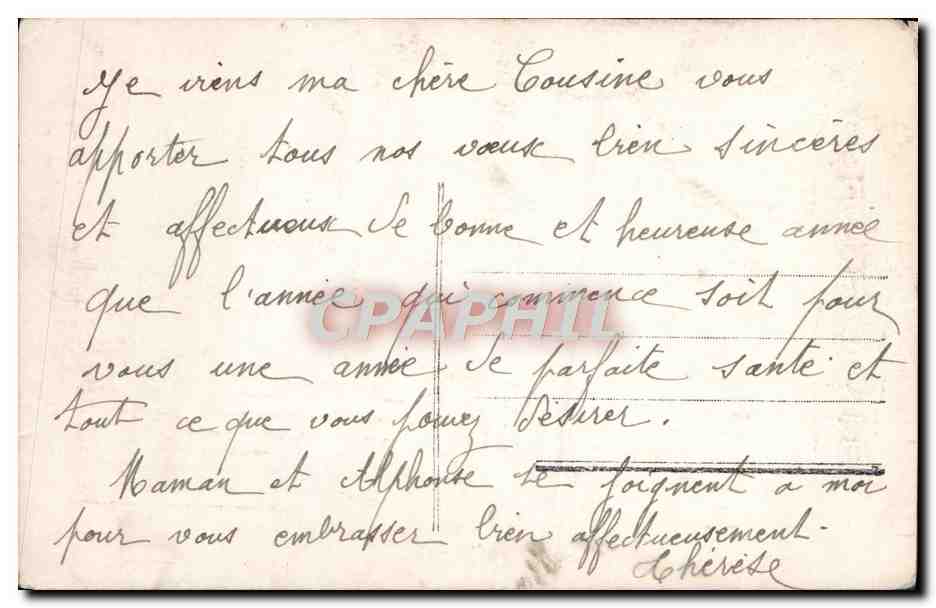 Je viens ma chère Cousine vous
apporter tous nos vœux bien sincères
et affectueux de bonne et heureuse année
que l'année qui commence soit pour
CPAPHIL
vous une année de parfaite santé et
tout ce que vous pouvez désirer.
Maman et Alphonse se joignent a moi
pour vous embrasser bien affectueusement-
Thérèse